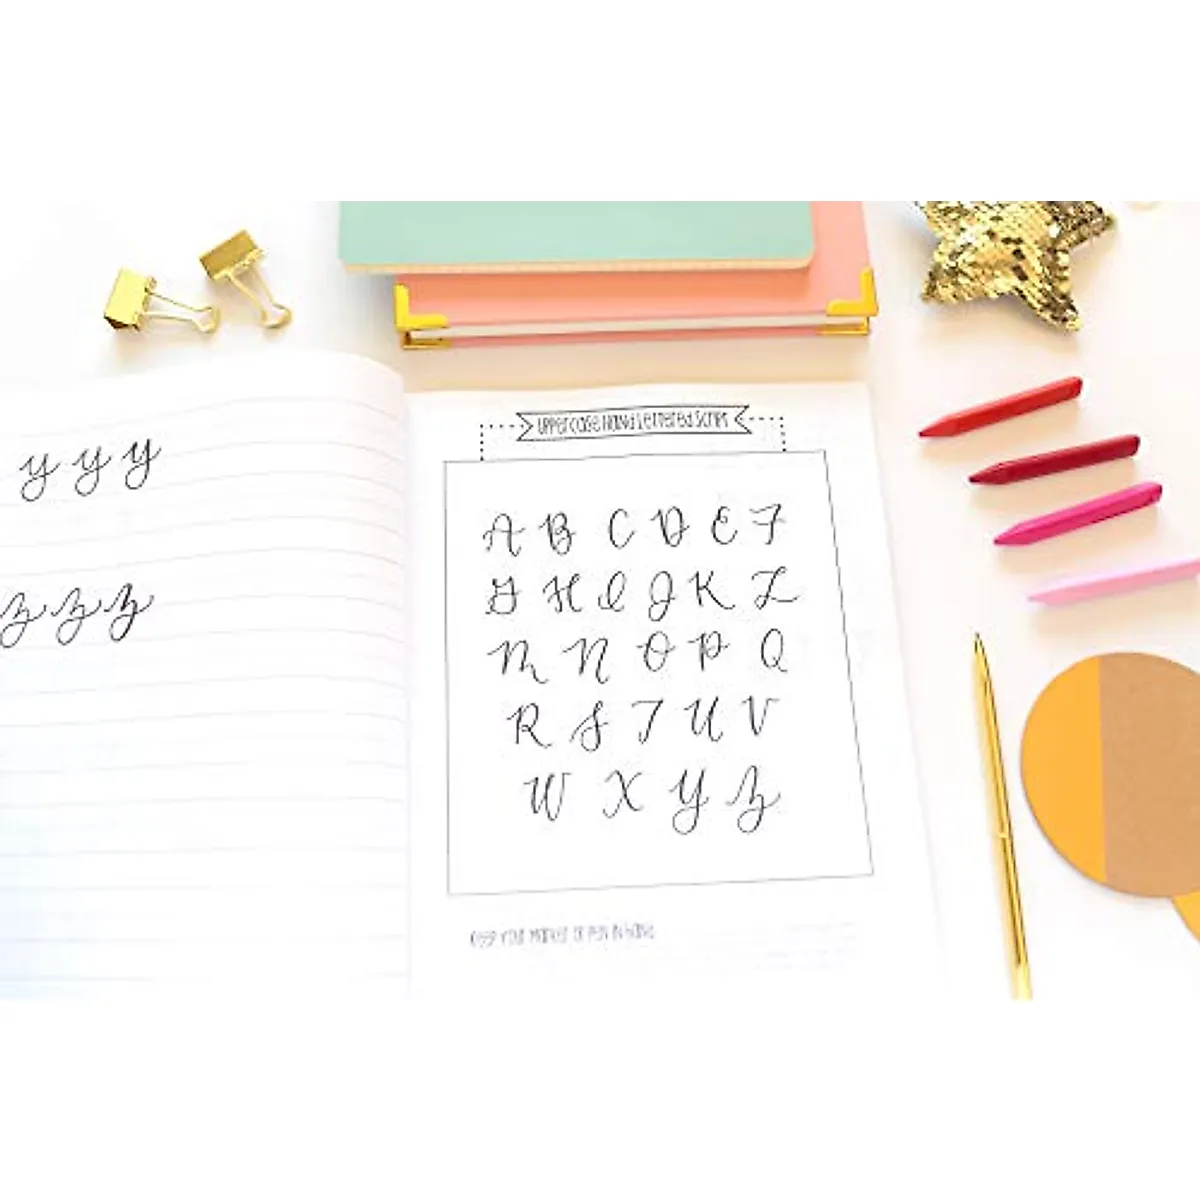 y y y
z z z
Uppercase Hand Lettered Script
A B C D E F
G H I J K L
M N O P Q
R S T U V
W X Y Z
Keep your marker or pen in hand